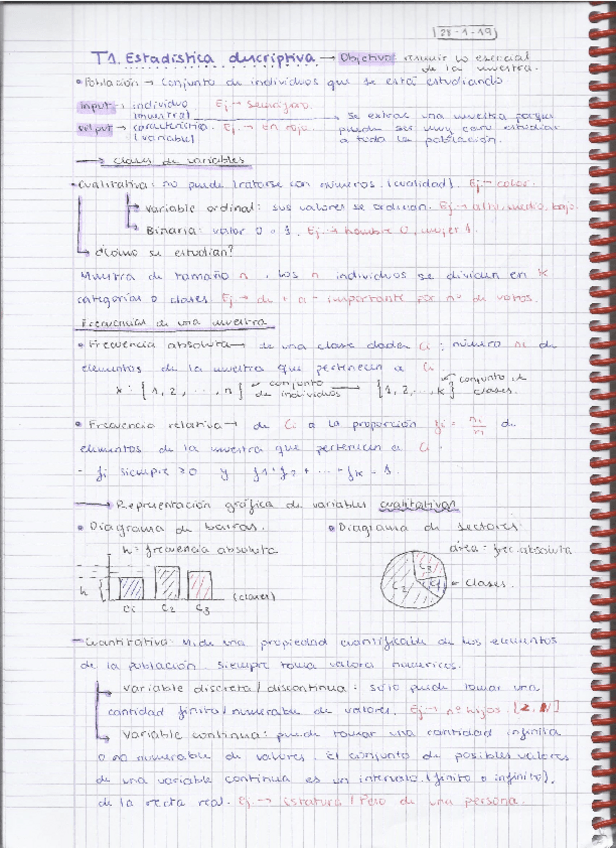 28-1-19
T1. Estadística descriptiva. → Objetivo resumir lo esencial
de la muestra.
• Población → conjunto de individuos que se está estudiando
input → individuo Ej → seguro
(muestra) → se extrae una muestra porque
output → característica. Ej. → en rojo. puede ser muy caro estudiar
(variable) a toda la población.
→ clases de variables
• Cualitativa: no puede tratarse con números. (cualidad). Ej → color.
→ Variable ordinal: sus valores se ordenan. Ej → alto, medio, bajo.
→ Binaria: valor 0 o 1. Ej. → hombre 0, mujer 1.
→ ¿Cómo se estudian?
Muestra de tamaño n, los n individuos se dividen en k
categorías o clases. Ej → de + a - importante por nº de votos.
Frecuencias de una muestra
• Frecuencia absoluta → de una clase dada ci: número ni de
elementos de la muestra que pertenecen a ci
x: {1, 2, ..., n} ← conjunto de individuos → {1, 2, ..., k} ← conjunto d clases.
• Frecuencia relativa → de ci a la proporción fi = ni/n de
elementos de la muestra que pertenecen a ci.
- fi siempre ≥0 y f1+f2+ ... +fk = 1.
→ Representación gráfica de variables cualitativas
• Diagrama de barras. • Diagrama de sectores
h = frecuencia absoluta área = frec. absoluta
h C1 C2 C3 (clases) C3 C2 C1 ← clases.
- Cuantitativa: Mide una propiedad cuantificable de los elementos
de la población. Siempre toma valores numéricos.
→ Variable discreta / discontinua: sólo puede tomar una
cantidad finita / numerable de valores. Ej → nº hijos. [Z, N]
→ Variable continua: puede tomar una cantidad infinita
o no numerable de valores. El conjunto de posibles valores
de una variable continua es un intervalo (finito o infinito).
de la recta real. Ej. → Estatura / Peso de una persona.